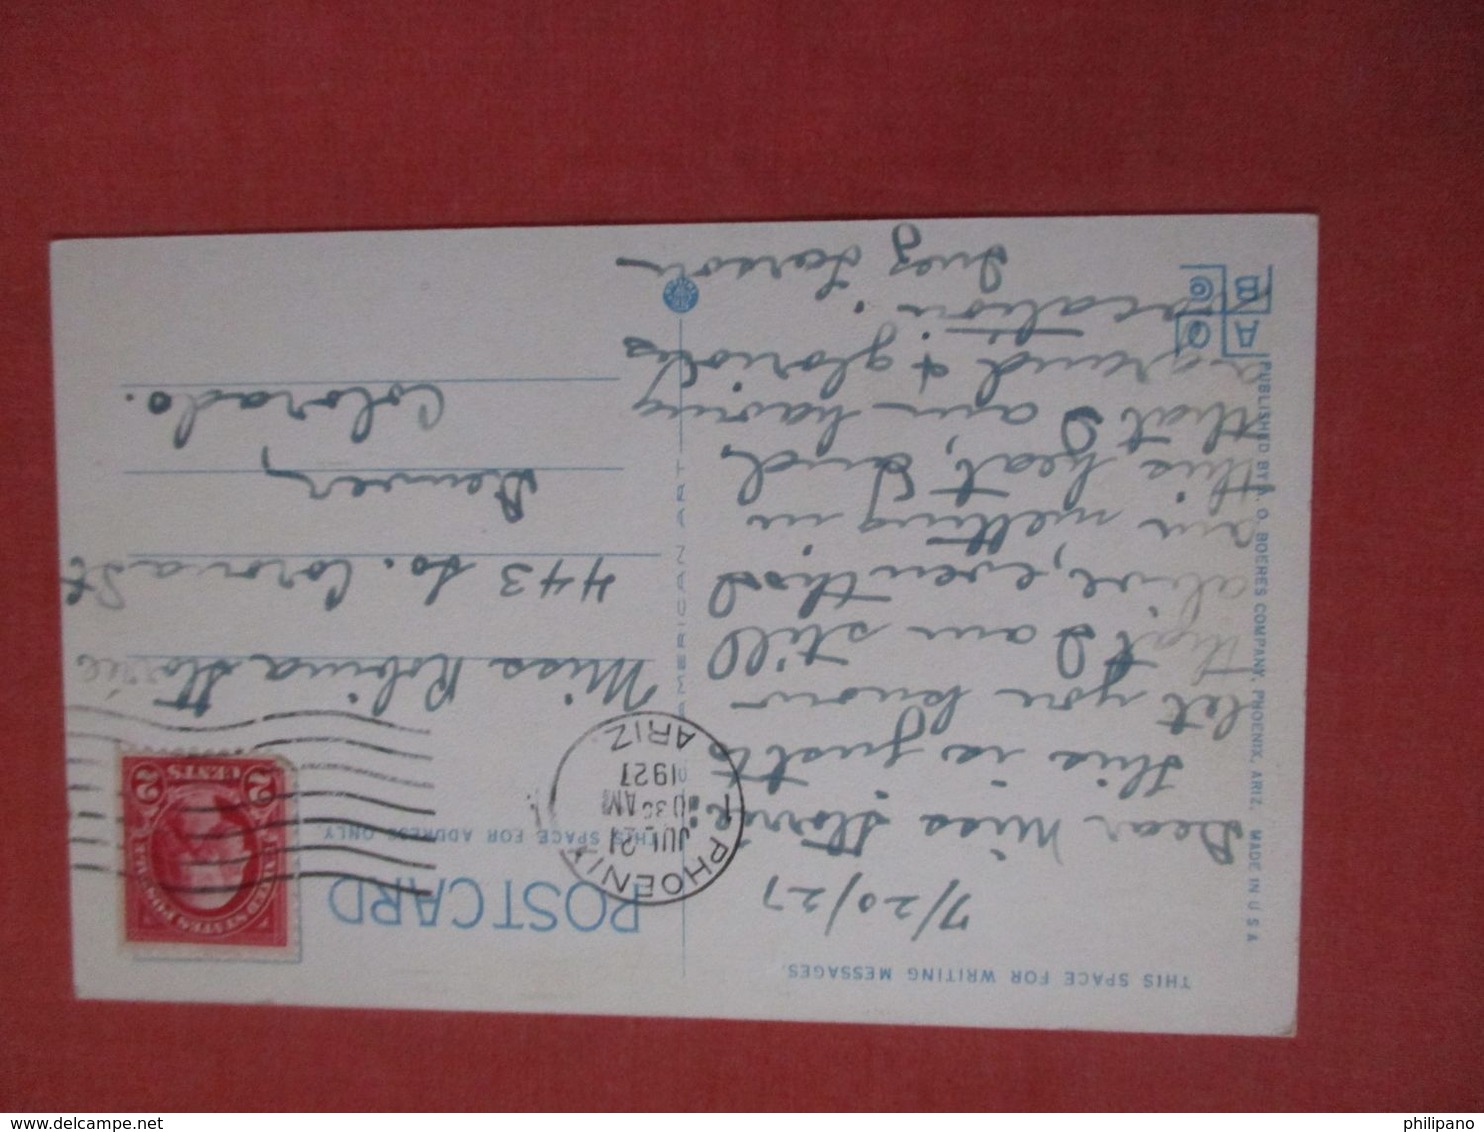 THIS SPACE FOR WRITING MESSAGES.
7/20/27
Dear Miss Storie
This is just to
let you know
that I am still
alive, eventho I
am melting in
this heat, and
that I am having
a grand & glorious
vacation.
Inez Larson
PUBLISHED BY A. O. BOERES COMPANY, PHOENIX, ARIZ. MADE IN U S A
A O
B @
AMERICAN ART
POSTCARD
THIS SPACE FOR ADDRESS ONLY.
PHOENIX
JUL 21
1030 AM
1927
ARIZ.
1
UNITED STATES POSTAGE
2 CENTS 2
Miss Robina Storie
443 So. Corona St
Denver,
Colorado.
delcampe.net
philipano